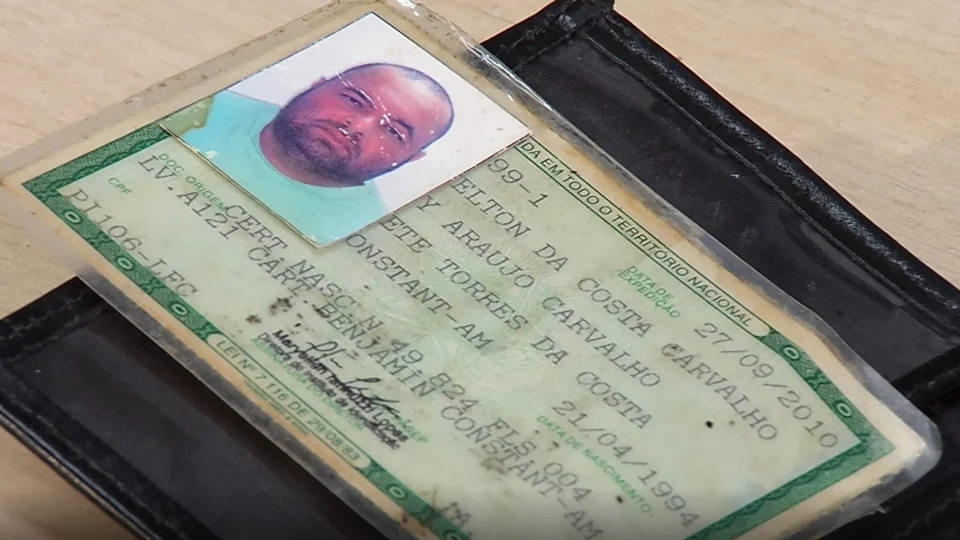 DA EM TODO O TERRITORIO NACIONAL
99-1
DATA DE
EXPEDIÇÃO
27/09/2010
ELTON DA COSTA CARVALHO
Y ARAUJO CARVALHO
ETE TORRES DA COSTA
DATA DE NASCIMENTO
ONSTANT-AM
21/04/1994
DOC ORIGEM
CERT NASC N 49 824 FLS 004
LV-A121 CART BENJAMIN CONSTANT-AM
CPF
LEI Nº 7.116 DE 29/08/83